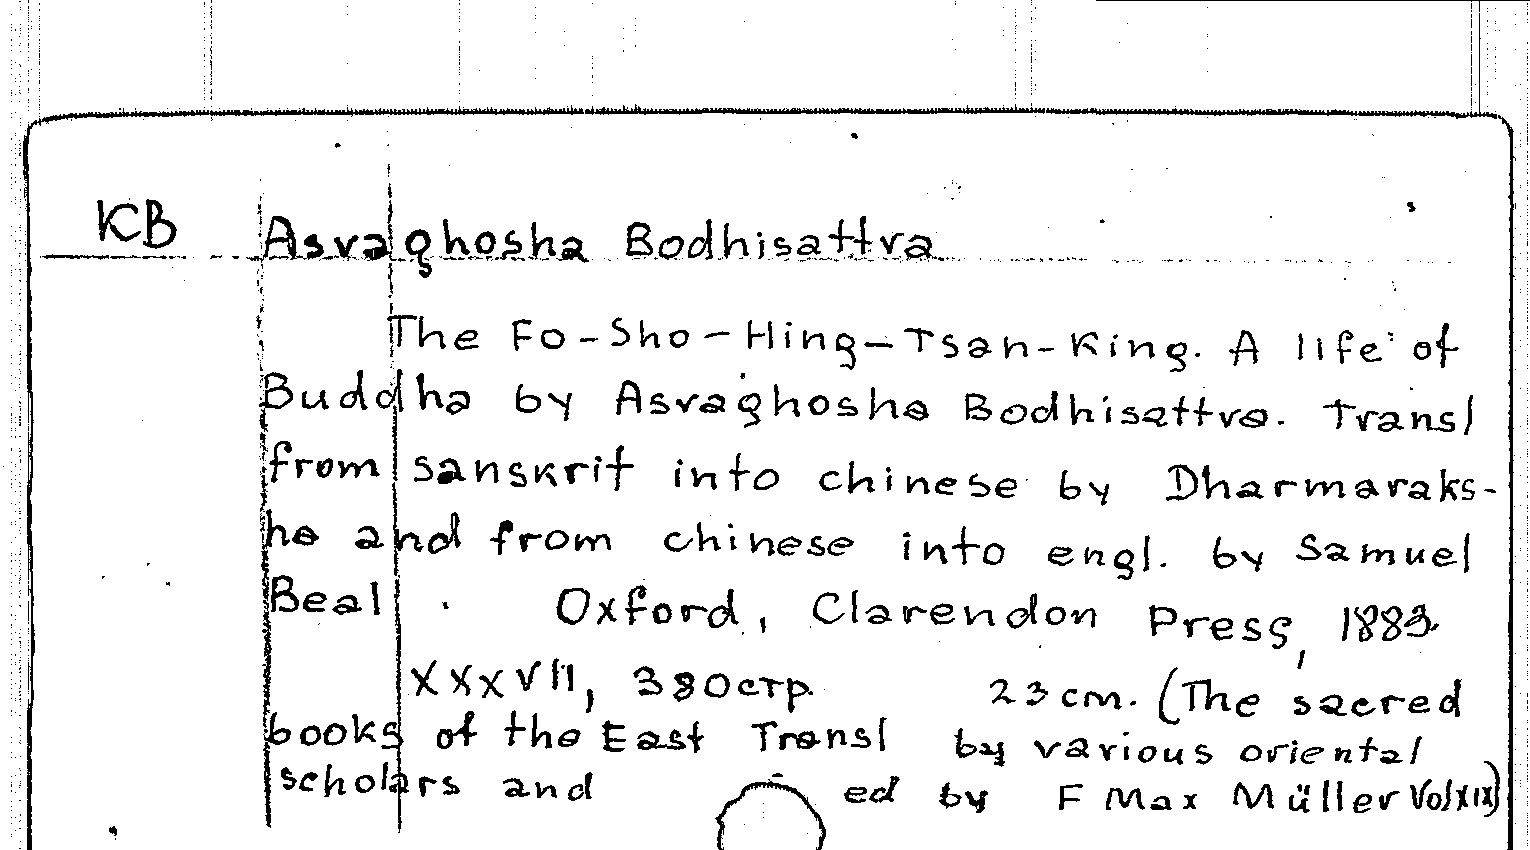 KB Asvaghosha Bodhisattva
The Fo-Sho-Hing-Tsan-King. A life of
Buddha by Asvaghosha Bodhisattva. Transl
from sanskrit into chinese by Dharmaraks-
ha and from chinese into engl. by Samuel
Beal. Oxford, Clarendon Press, 1883
XXXVII, 380стр. 23 cm. (The sacred
books of the East Transl by various oriental
scholars and ed by F Max Müller Vol XIX)